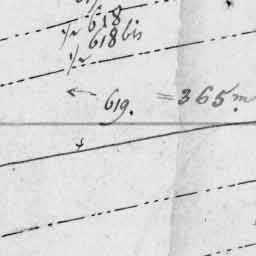 ½ 618
½ 618 bis
619. = 365 m